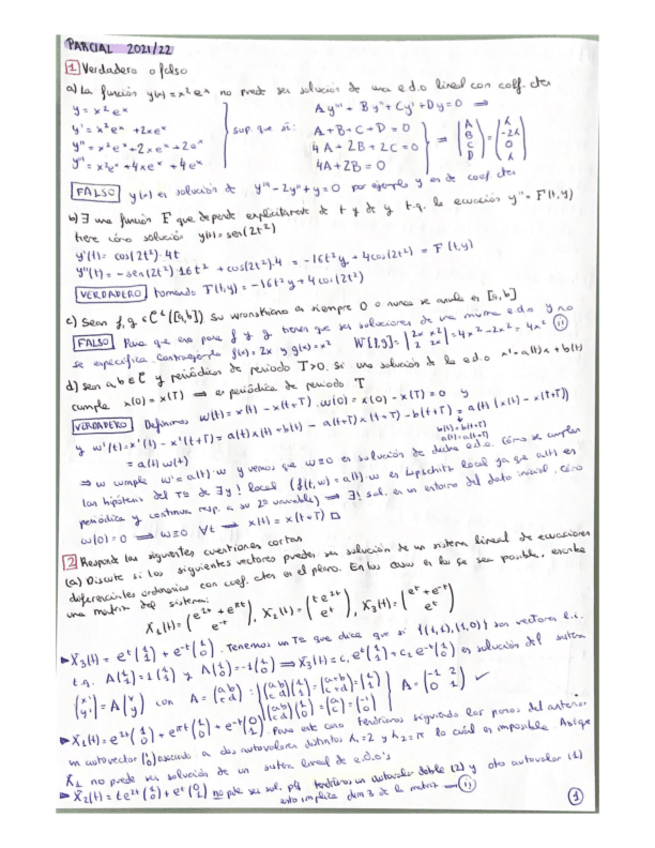 PARCIAL 2021/22
1 Verdadero o falso
a) La función y(x) = x²eˣ no puede ser solución de una e.d.o lineal con coef. ctes
y = x²eˣ
y' = x²eˣ + 2xeˣ
y'' = x²eˣ + 2xeˣ + 2eˣ
y''' = x²eˣ + 4xeˣ + 4eˣ
sup. que sí:
Ay''' + By'' + Cy' + Dy = 0 ⟹
A + B + C + D = 0
4A + 2B + 2C = 0
4A + 2B = 0
⟹ (A B C D) = (λ -2λ 0 λ)
FALSO y(x) es solución de y''' - 2y'' + y = 0 por ejemplo y es de coef ctes
b) ∃ una función F que depende explícitamente de t y de y t.q. la ecuación y'' = F(t,y)
tiene como solución y(t) = sen(2t²)
y'(t) = cos(2t²)·4t
y''(t) = -sen(2t²)·16t² + cos(2t²)·4 = -16t²y + 4cos(2t²) = F(t,y)
VERDADERO Tomando F(t,y) = -16t²y + 4cos(2t²)
c) Sean f, g ∈ C¹([a,b]) Su wronskiano es siempre 0 o nunca se anula en [a,b]
FALSO Para que eso pase f y g tienen que ser soluciones de una misma e.d.o y no
se especifica. Contraejemplo f(x) = 2x y g(x) = x² W[f,g] = |2x x² 2 2x| = 4x² - 2x² = 4x²
d) Sean a, b ∈ C y periódicas de periodo T>0. Si una solución de la e.d.o x' = a(t)x + b(t)
cumple x(0) = x(T) ⟹ es periódica de periodo T
VERDADERO Definimos w(t) = x(t) - x(t+T). w(0) = x(0) - x(T) = 0 y
y w'(t) = x'(t) - x'(t+T) = a(t)x(t) + b(t) - a(t+T)x(t+T) - b(t+T) = a(t)(x(t) - x(t+T))
b(t) = b(t+T)
a(t) = a(t+T)
= a(t)w(t)
⟹ w cumple w' = a(t)·w y vemos que w≡0 es solución de dicha e.d.o. Cómo se cumplen
las hipótesis del Tª de ∃ y ! local (f(t,w) = a(t)·w es Lipschitz local ya que a(t) es
periódica y continua resp. a su 2ª variable) ⟹ ∃! sol. en un entorno del dato inicial. Cómo
w(0) = 0 ⟹ w≡0 ∀t ⟹ x(t) = x(t+T) □
2 Responde las siguientes cuestiones cortas
(a) Discute si los siguientes vectores pueden ser solución de un sistema lineal de ecuaciones
diferenciales ordinarias con coef. ctes en el plano. En los casos en los que sea posible, escribe
una matriz del sistema:
X₁(t) = (e²ᵗ + e^πt e⁻ᵗ), X₂(t) = (t e²ᵗ eᵗ), X₃(t) = (eᵗ + e⁻ᵗ eᵗ)
► X₃(t) = eᵗ(1 1) + e⁻ᵗ(1 0). Tenemos un Tª que dice que si {(1,1),(1,0)} son vectores l.i.
t.q. A(1 1) = 1(1 1) y A(1 0) = -1(1 0) ⟹ X₃(t) = c₁eᵗ(1 1) + c₂e⁻ᵗ(1 0) es solución del sistema
(x' y') = A(x y) con A = (a b c d): (a b c d)(1 1) = (a+b c+d) = (1 1) (a b c d)(1 0) = (a c) = (-1 0) } A = (-1 2 0 1) ✓
► X₁(t) = e²ᵗ(1 0) + e^πt(1 0) + e⁻ᵗ(0 1). Para este caso tendríamos siguiendo los pasos del anterior
un autovector (1 0) asociado a dos autovalores distintos λ₁=2 y λ₂=π lo cual es imposible. Así que
X₁ no puede ser solución de un sistema lineal de e.d.o's
► X₂(t) = te²ᵗ(1 0) + eᵗ(0 1) no pde ser sol. pq tendríamos un autovalor doble (2) y otro autovalor (1)
esto implica dim 3 de la matriz
1